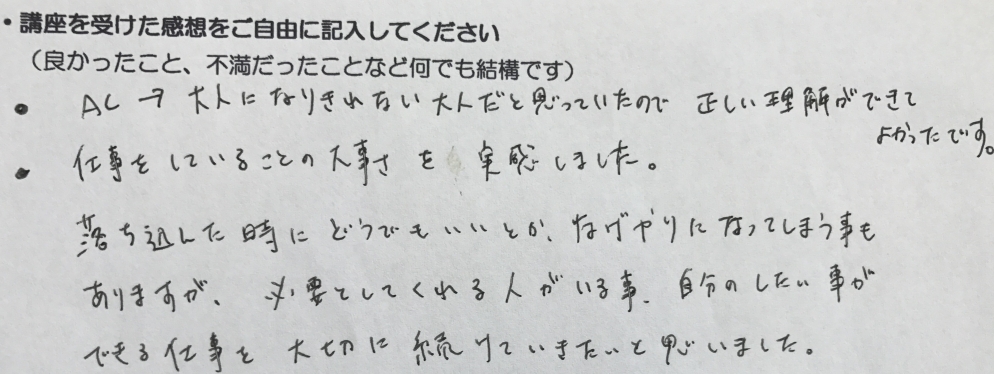 ・講座を受けた感想をご自由に記入してください
（良かったこと、不満だったことなど何でも結構です）
• AC → 大人になりきれない大人だと思っていたので 正しい理解ができて
よかったです。
• 仕事をしていることの大事さを 実感しました。
落ち込んだ時にどうでもいいとか、なげやりになってしまう事も
ありますが、必要としてくれる人がいる事、自分のしたい事が
できる仕事を大切に続けていきたいと思いました。